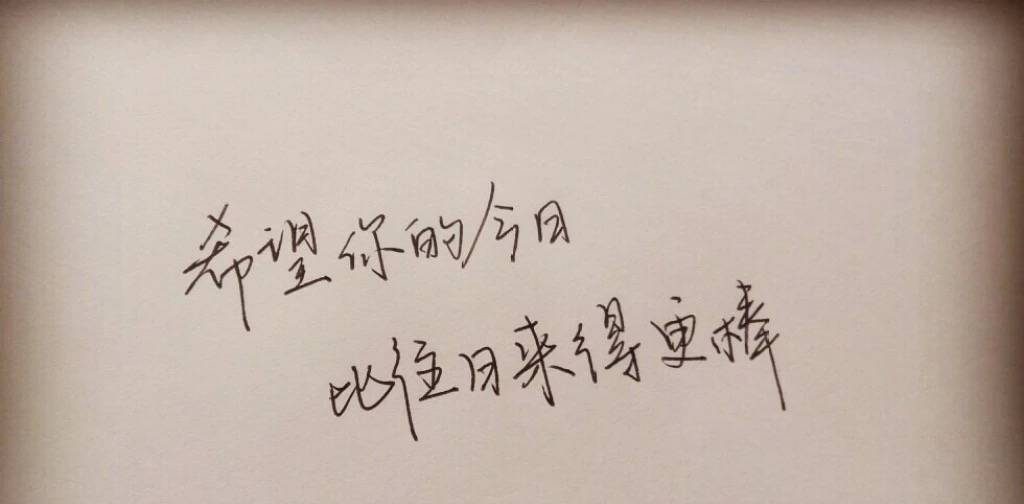 希望你的今日
比往日来得更棒